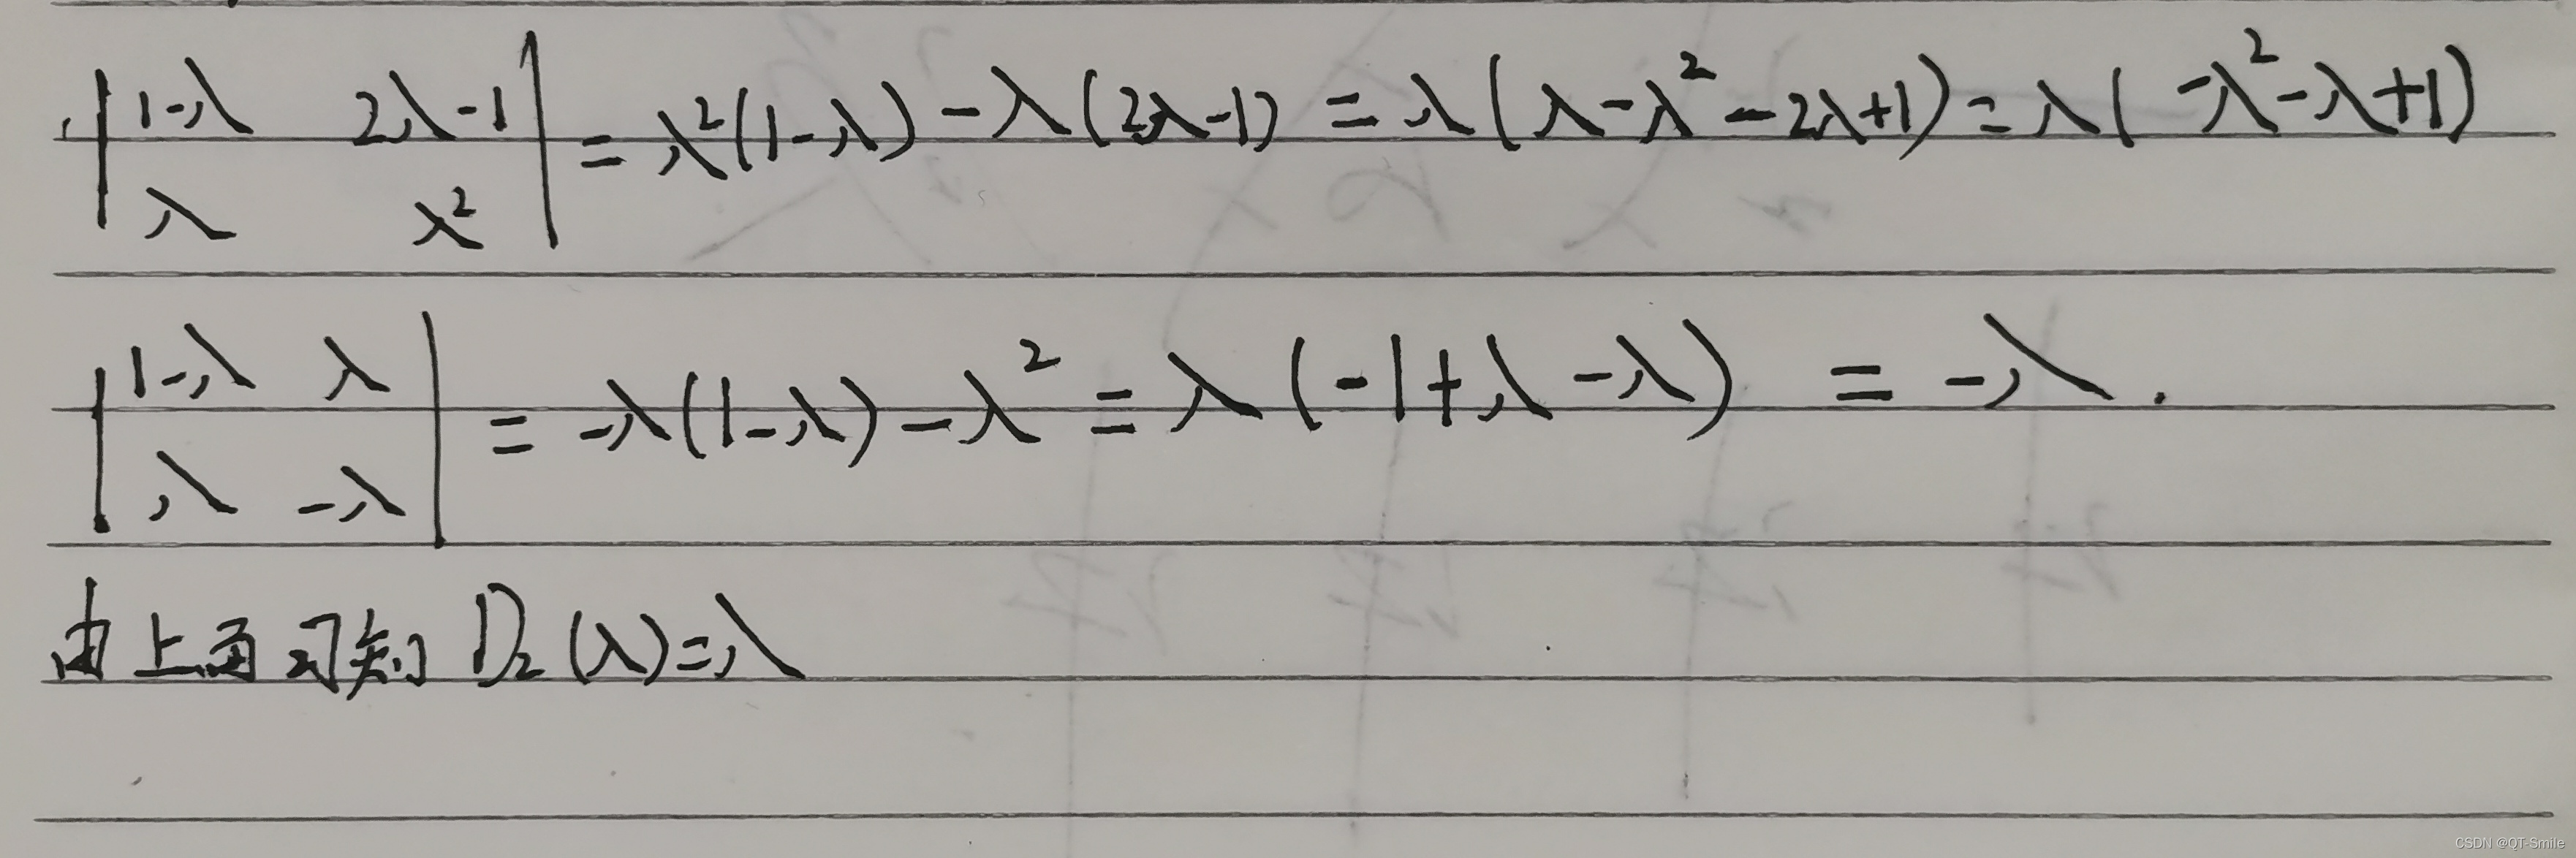 | 1-λ 2λ-1 | = λ²(1-λ) - λ(2λ-1) = λ(λ-λ²-2λ+1) = λ(-λ²-λ+1)
| λ λ² |
| 1-λ λ | = -λ(1-λ) - λ² = λ(-1+λ-λ) = -λ.
| λ -λ |
由上面可知 D₂(λ)=λ
CSDN @QT-Smile